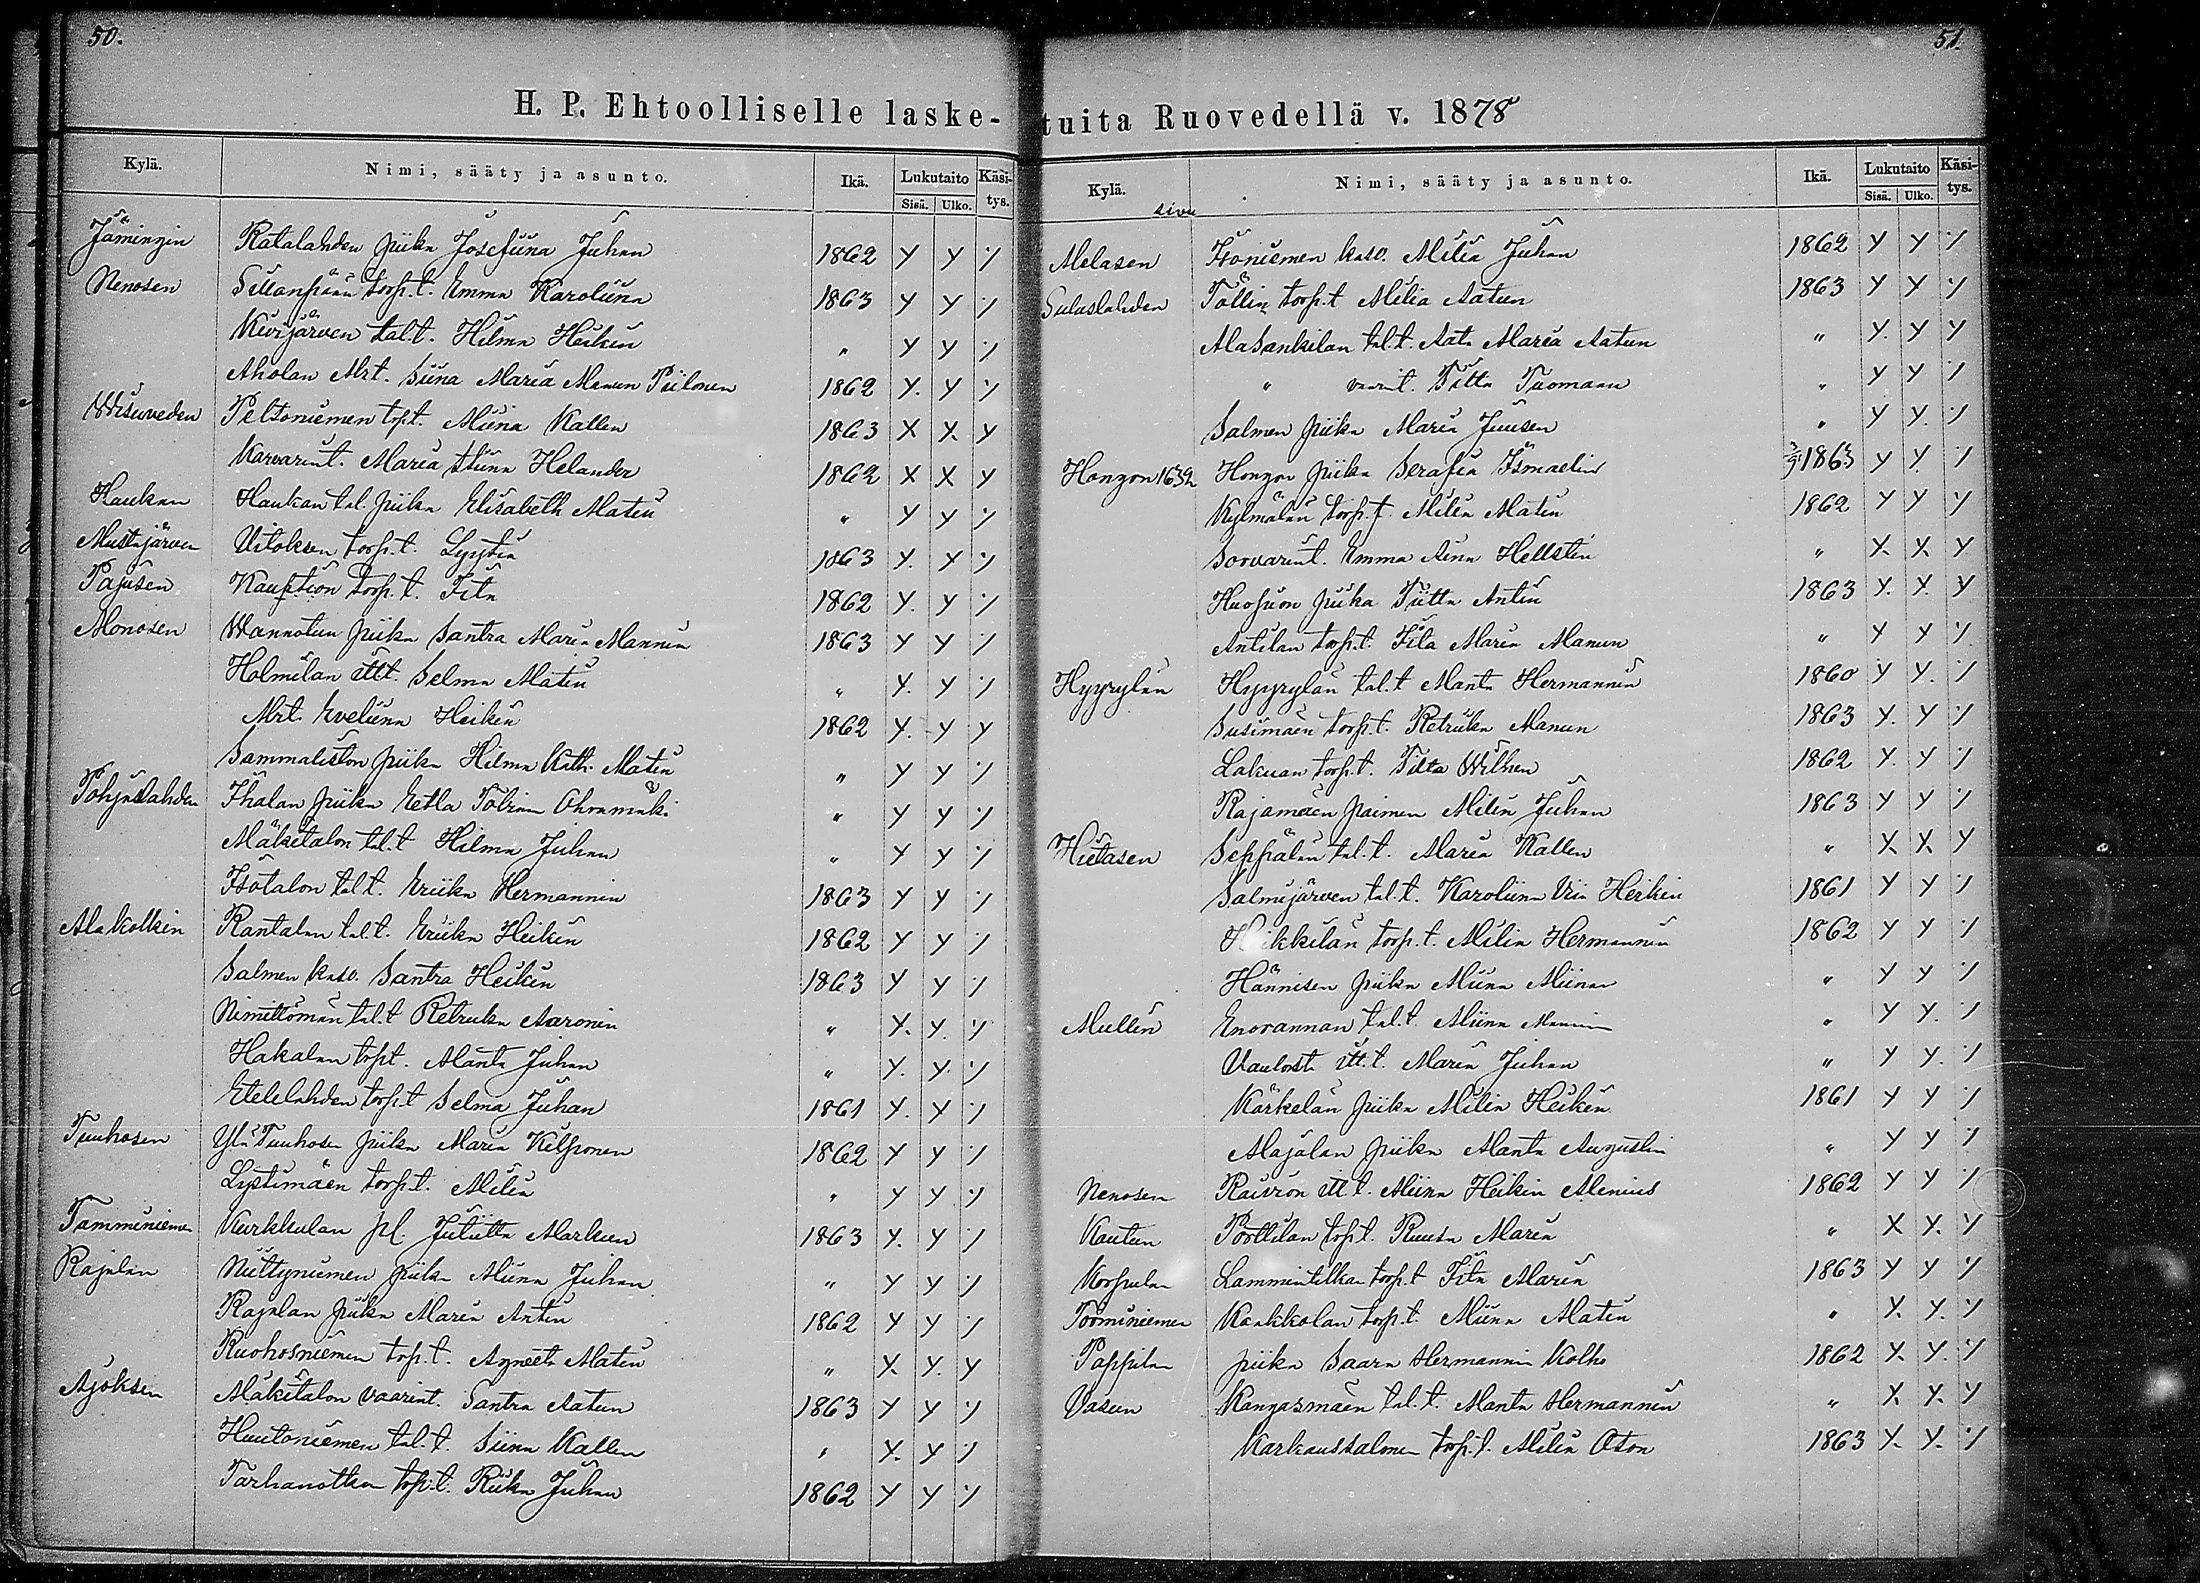 50.
H. P. Ehtoolliselle laske-
Kylä. Nimi, sääty ja asunto. Ikä. Lukutaito Käsi-
Sisä. Ulko. tys.
Jäminkin Ratalahden piika Josefiina Juhan 1862 Y Y ·/.
Nenosen Sillanpään torp.t. Emma Karoliina 1863 Y Y ·/.
Kivijärven tal.t. Hilma Heikin " Y Y ·/.
Aholan Mrt. Siina Maria Manun Piilonen 1862 Y. Y ·/.
Wisuveden Peltoniemen tpt. Miina Kallen 1863 X X. Y
Karvarint. Maria Stiina Helander 1862 X X Y
Haukan Haukan tal. piika Elisabeth Matin " Y Y ·/.
Mustajärven Uitoksen torp.t. Lyytia 1863 Y. Y ·/.
Pajusen Kauption torp.t. Iita 1862 Y. Y ·/.
Monosen Wannotun piika Santra Maria Mannin 1863 Y Y ·/.
Holmilan itt. Selma Matin " Y. Y ·/.
Mrt. Eveliina Heikin 1862 Y. Y Y
Sammaliston piika Hilma Kath. Matin " Y Y ·/.
Pohjaslahden Ihalan piika Eetla Tobian Ohramäki " Y Y ·/.
Mäkitalon tal.t Hilma Juhan " Y Y ·/.
Isotalon tal t. Eriika Hermannin 1863 Y Y ·/.
Ala Kolkin Rantalan tal.t. Eriika Heikin 1862 Y Y ·/.
Salmen kasv. Santra Heikin 1863 Y Y ·/.
Nimettömän tal.t Retriika Aaronin " Y. Y. ·/.
Hakalan tpt. Manta Juhan " Y. Y. ·/.
Etelälahden torp.t Selma Juhan 1861 Y. Y ·/.
Tuuhosen Ylä Tuuhosen piika Maria Kilponen 1862 Y Y ·/.
Lystimäen torp.t. Milia " Y Y ·/.
Tamminiemen Kurkkulan pl. Julietta Markun 1863 Y. Y ·/.
Rajalan Niittyniemen piika Miina Juhan " Y Y ·/.
Rajalan piika Maria Antin 1862 Y Y ·/.
Ruohosniemen torp.t. Agneeta Matin " X. Y. Y
Ajoksen Mäkitalon vaarint. Santra Aatun 1863 Y Y ·/.
Huutoniemen tal.t. Siina Kallen " X. Y ·/.
Tarhanotkon torp.t. Riika Juhan 1862 Y Y ·/.
51
tuita Ruovedellä v. 1878
Kylä. Nimi, sääty ja asunto. Ikä. Lukutaito Käsi-
Sisä. Ulko. tys.
sivu
Melasen Isoniemen kasv. Milia Juhan 1862 Y Y ·/.
Suluslahden Töllin torp.t Milia Aatun 1863 Y Y ·/.
AlaSankilan tal.t. Aata Maria Aatun " Y. Y Y
" vaarint. Tilta Tuomaan " Y Y ·/.
Salmen piika Maria Juusen " Y Y. ·/.
Hongon 1632 Hongon piika Serafia Ismaelin 3/9 1863 Y Y. ·/.
Kylmälän torp.t. Milia Matin 1862 Y Y ·/.
Sorvarint. Emma Aina Hellstén " X. X. Y
Huopion piika Tilta Antin 1863 Y. Y. Y
Antilan torp.t. Iita Maria Manun " Y Y ·/.
Hyyrylän Hyyrylän tal.t Manta Hermannin 1860 Y Y. ·/.
Susimäen torp.t. Retriika Manun 1863 Y. Y ·/.
Lakuan torp.t. Tilta Wilhen 1862 Y. Y ·/.
Rajamäen paimen Milia Juhan 1863 Y Y ·/.
Hietasen Seppälän tal.t. Maria Kallen " X. X. Y
Salmijärven tal.t. Karoliina Heikin 1861 Y Y ·/.
Heikkilän torp.t. Milia Hermannin 1862 Y Y ·/.
Hännisen piika Miina Miinan " Y Y ·/.
Mullin Enorannan tal.t. Miina " Y Y. ·/.
itt.t. Maria Juhan " Y Y. ·/.
Kärkelän piika Milia Heikin 1861 Y Y ·/.
Majalan piika Manta Augustin " Y Y ·/.
Nenosen Raivion itt t. Miina Heikin Menius 1862 Y Y ·/.
Kautun Porttilan torp.t. Ruusa Maria " X Y. Y
Korpulan Lammintilkan torp.t Iita Maria 1863 Y Y Y
Törminiemen Kaakkolan torp.t. Miina Matin " Y. Y. ·/.
Pappilan piika Saara Hermannin Kolho 1862 Y. Y. ·/.
Vasun Kangasmäen tal.t. Manta Hermannin " X. X. Y
Karkaussalmen torp.t. Milia Oton 1863 Y. Y. ·/.